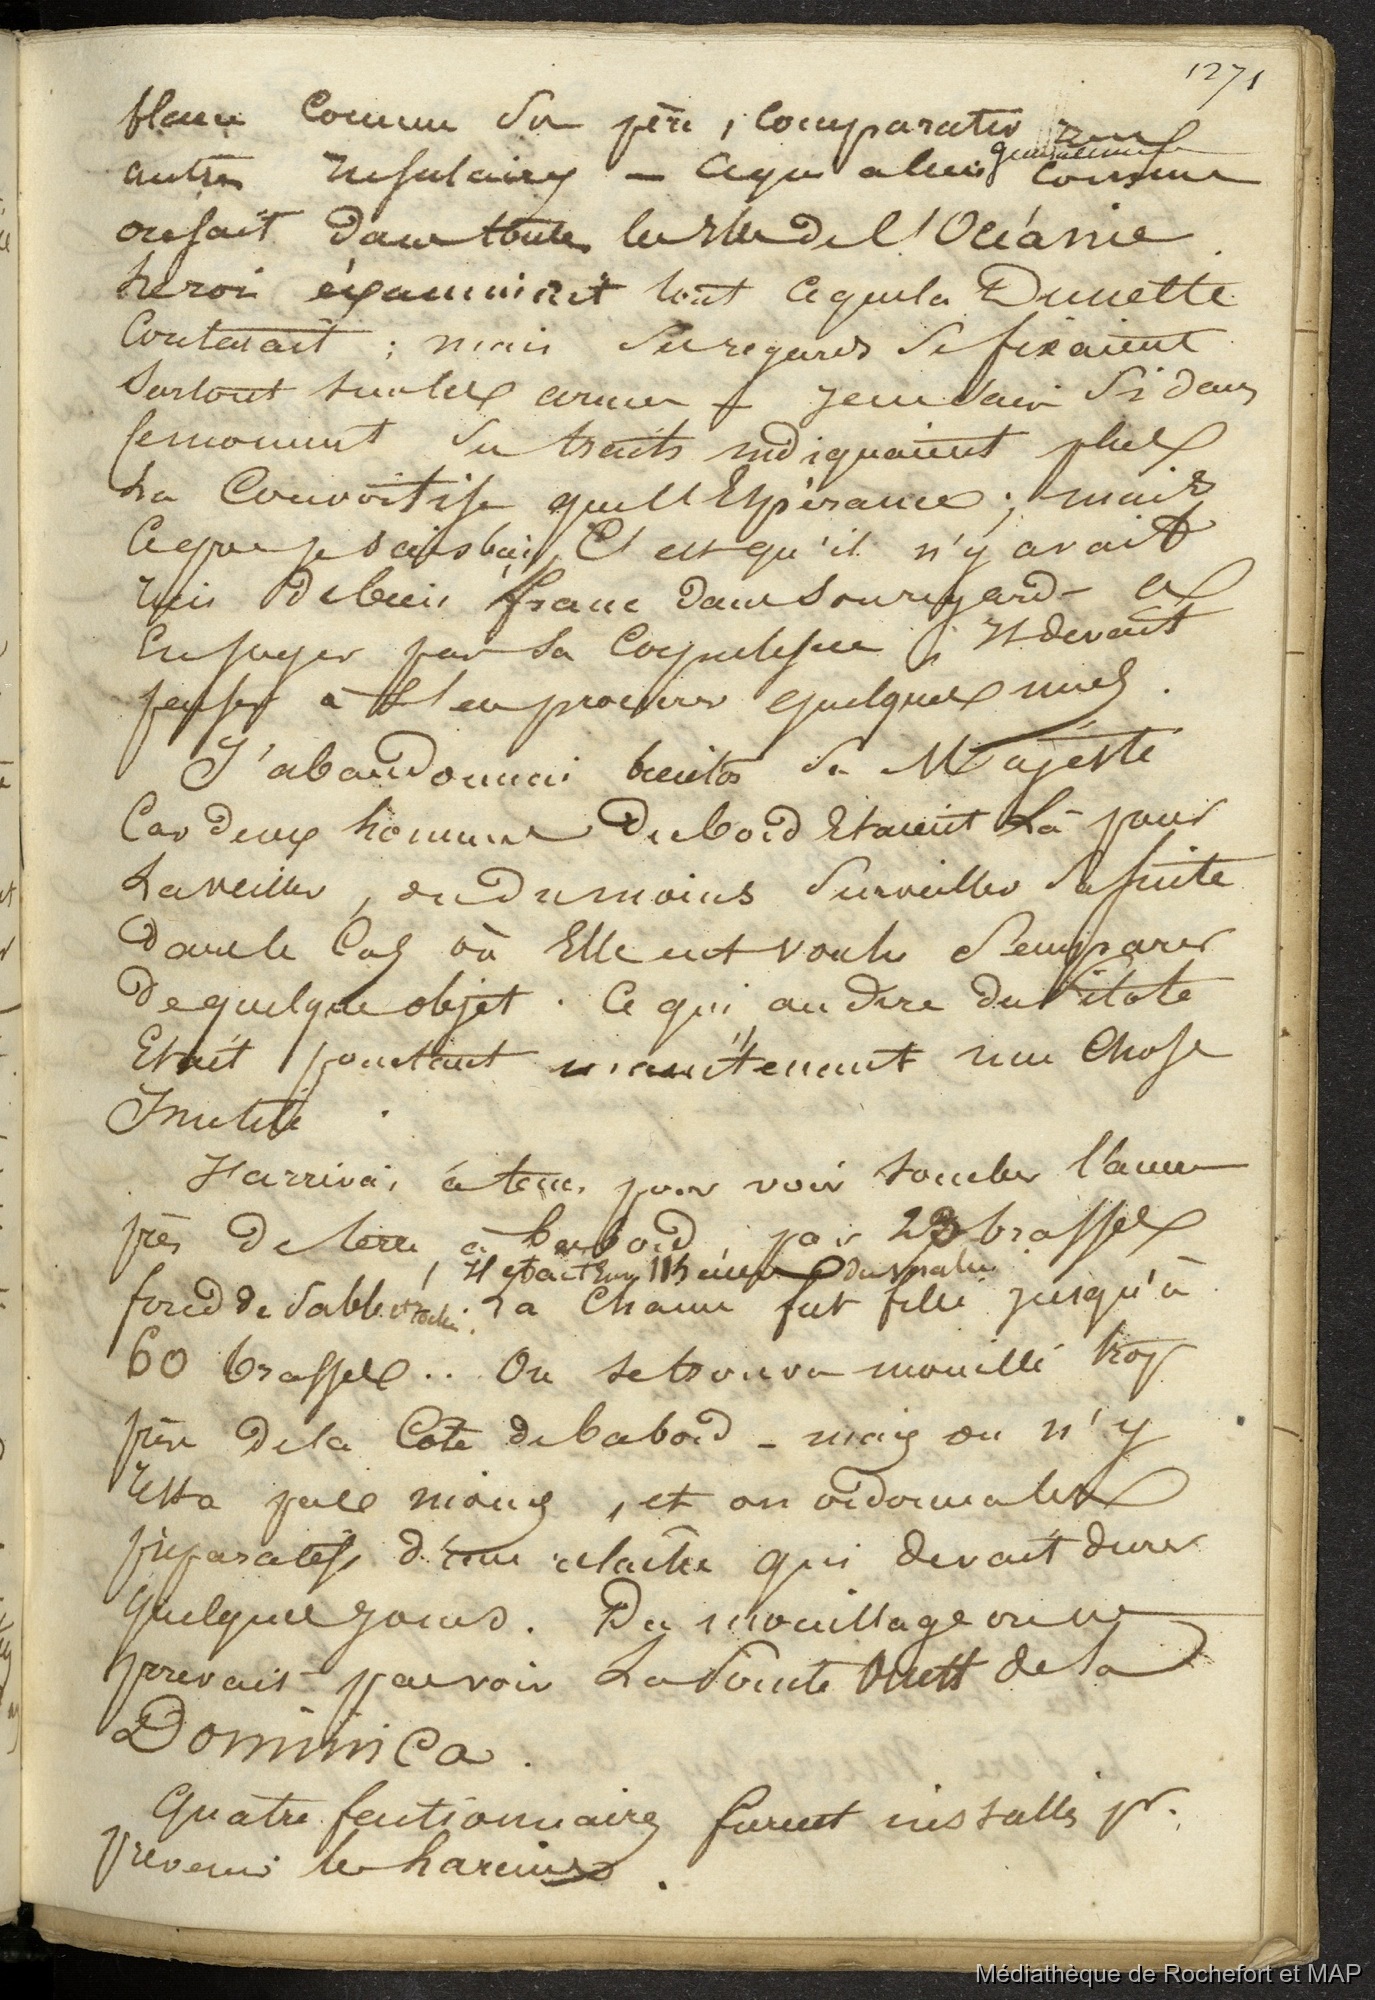 1271
blanc comme son père, comparativ aux
autres insulaires – ce qui a lieu généralement comme
on sait dans toutes les Iles de l'Océanie
Le roi éxaminait tout ce que la Dunette
Contenait ; mais ses regards se fixaient
surtout sur les armes – je ne sais si dans
ce moment ses traits indiquaient plus
la Convoitise que l'Espérance ; mais
ce que je sais bien, C'est qu'il n'y avait
rien de bien franc dans son regard – et
En juger par sa , Il devait
penser à s'en procurer quelques unes.
J'abandonnai bientôt sa Majesté
Car deux hommes du bord Etaient là pour
la veiller, ou du moins surveiller sa suite
dans le Cas où Elle eut voulu s'emparer
de quelque objet. Ce qui au dire du Pilote
Etait pourtant maintenant une chose
Inutile.
J'arrivai à tems pour voir tomber l'ancre
près de terre, à babord par 23 brasses
Il etait Env 11 heures du matin
fond de sable et roche. La Chaine fut filée jusqu'à
60 brasses.. On se trouva mouillé trop
près de la Côte de babord – mais on n'y
resta pas moins, et on ordonna les
préparatifs d'une relache qui devait durer
quelques jours. Du mouillage on ne
pouvait pas voir la Pointe Ouest de la
Dominica.
Quatre factionnaires furent installés pr.
prevenir les larcins.
Médiathèque de Rochefort et MAP